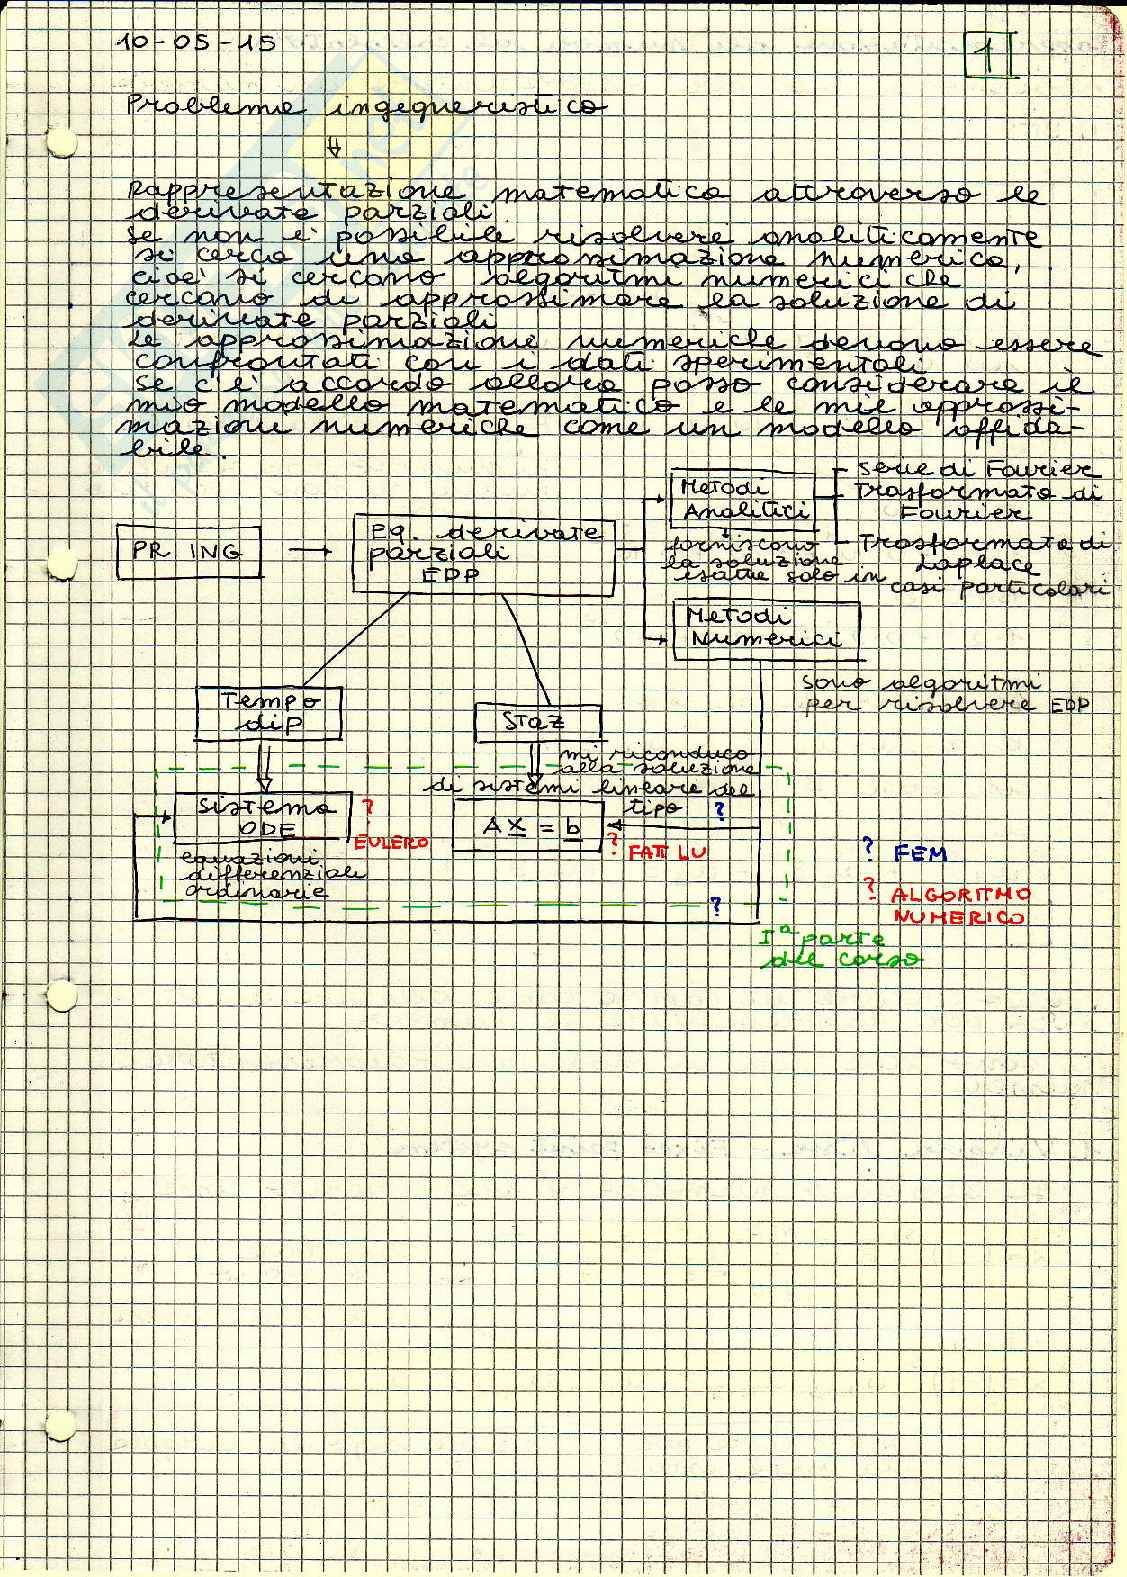 10-05-15
1
Problema ingegneristico
Rappresentazione matematica attraverso le
derivate parziali
se non è possibile risolvere analiticamente
si cerca una approssimazione numerica,
cioè si cercano algoritmi numerici che
cercano di approssimare la soluzione di
derivate parziali
Le approssimazione numeriche devono essere
confrontati con i dati sperimentali
se c'è accordo allora posso considerare il
mio modello matematico e le mie approssi-
mazioni numeriche come un modello affida-
bile.
PR ING
Eq. derivate
parziali
EDP
Metodi
Analitici
Serie di Fourier
Trasformata di
Fourier
Trasformata di
Laplace
forniscono
la soluzione
esatta solo in
casi particolari
Metodi
Numerici
sono algoritmi
per risolvere EDP
Tempo
dip
Staz
mi riconduco
alla soluzione
di sistemi lineare del
tipo ?
Sistema
ODE
?
EULERO
A X = b
?
FATT LU
equazioni
differenziali
ordinarie
?
? FEM
? ALGORITMO
NUMERICO
Iª parte
del corso